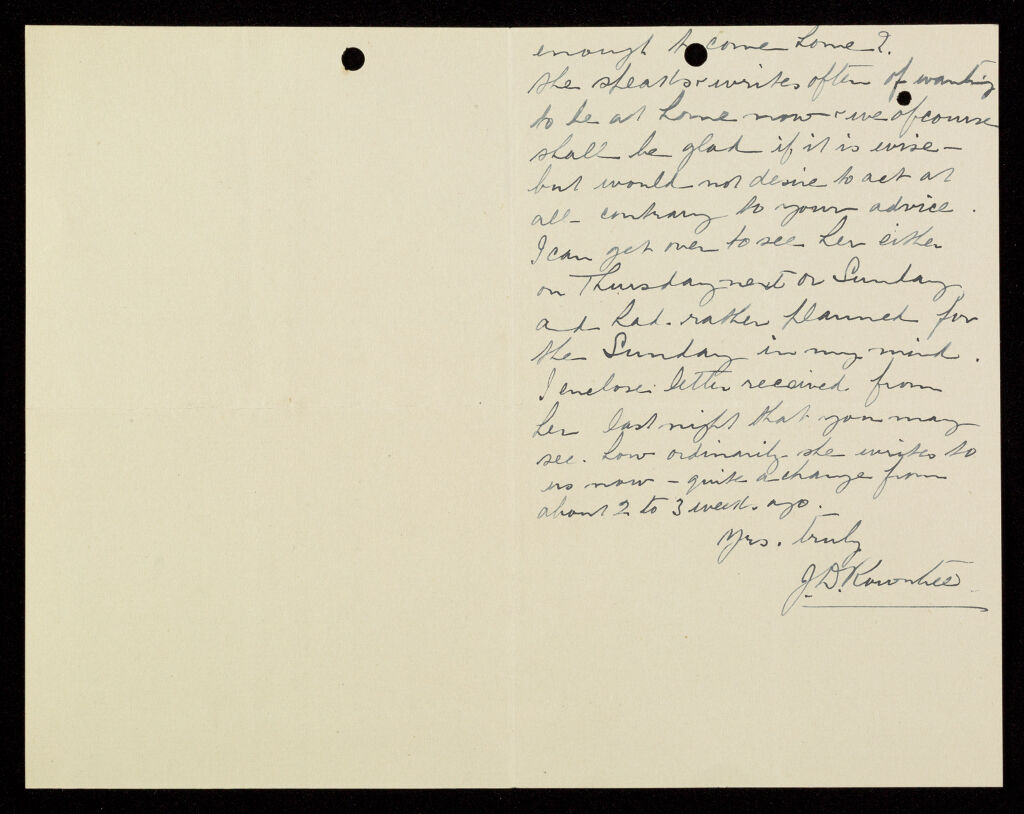 enough to come home?
She speaks & writes often of wanting
to be at home now & we of course
shall be glad if it is wise –
but would not desire to act at
all contrary to your advice.
I can get over to see her either
on Thursday next or Sunday
and had rather planned for
the Sunday in my mind.
I enclose letter received from
her last night that you may
see how ordinarily she writes to
us now – quite a change from
about 2 to 3 weeks ago.
Yrs. truly
J. D. Rowntree